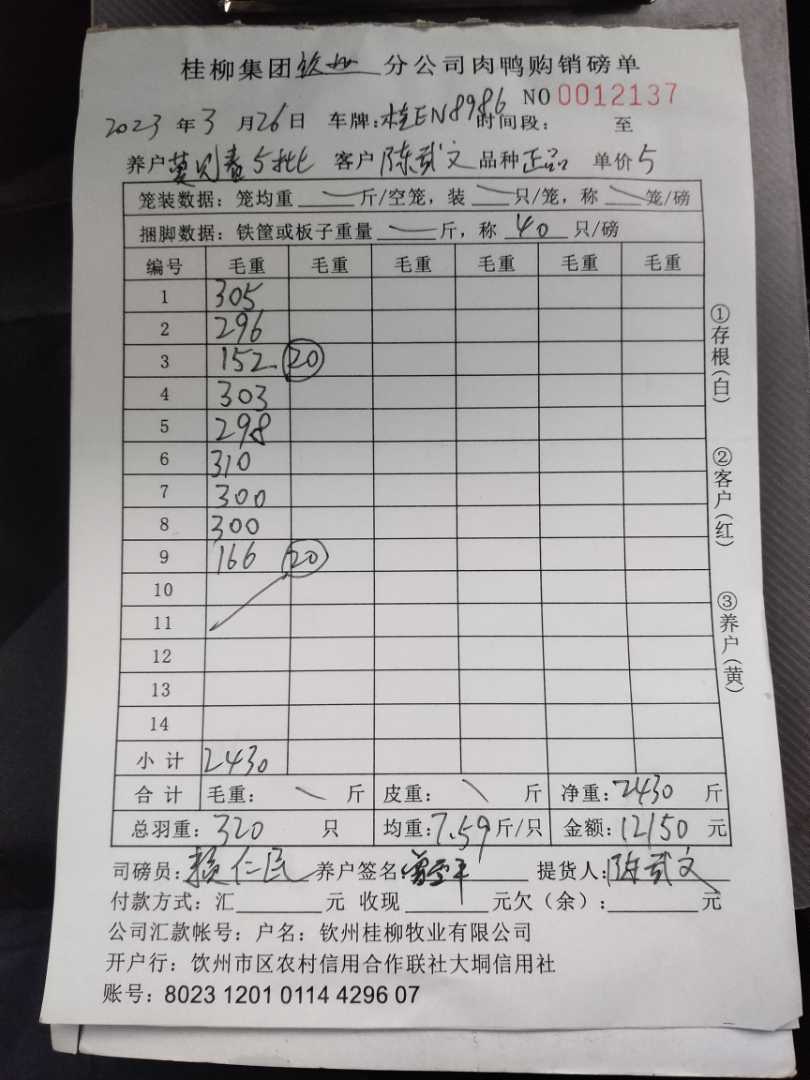 桂柳集团钦州分公司肉鸭购销磅单
NO 0012137
2023年3月26日 车牌:桂EN8986 时间段: 至
养户 莫见春5批 客户 陈武文 品种 正品 单价 5
笼装数据:笼均重 斤/空笼,装 只/笼,称 笼/磅
捆脚数据:铁筐或板子重量 斤,称 40 只/磅
编号 毛重 毛重 毛重 毛重 毛重 毛重
1 305
2 296
3 152 20
4 303
5 298
6 310
7 300
8 300
9 166 20
10
11
12
13
14
小计 2430
合计 毛重: 斤 皮重: 斤 净重:2430 斤
总羽重:320 只 均重:7.59斤/只 金额:12150 元
司磅员:赖仁民 养户签名 提货人:陈武文
付款方式:汇 元 收现 元欠(余): 元
公司汇款帐号:户名:钦州桂柳牧业有限公司
开户行:饮州市区农村信用合作联社大垌信用社
账号:8023 1201 0114 4296 07
①存根(白)
②客户(红)
③养户(黄)